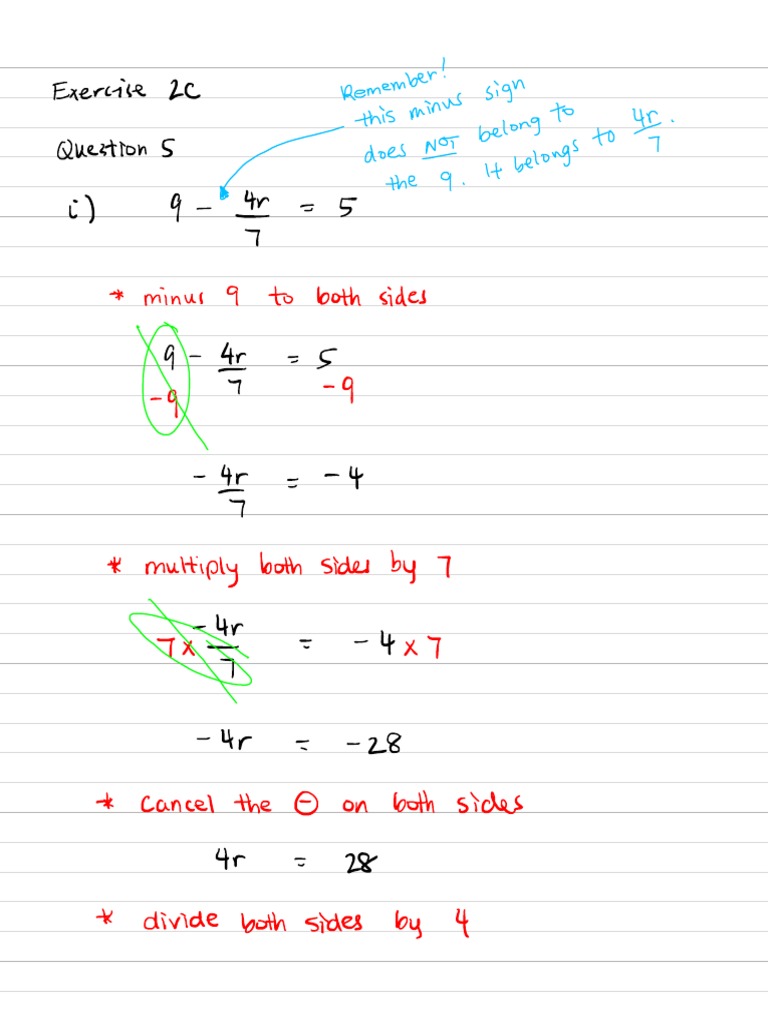 Exercise 2C
Remember!
this minus sign
does NOT belong to
the 9. It belongs to 4r/7.
Question 5
i) 9 - 4r/7 = 5
* minus 9 to both sides
9 - 4r/7 = 5
-9 -9
- 4r/7 = -4
* multiply both sides by 7
7 × -4r/7 = -4 × 7
-4r = -28
* cancel the ⊖ on both sides
4r = 28
* divide both sides by 4